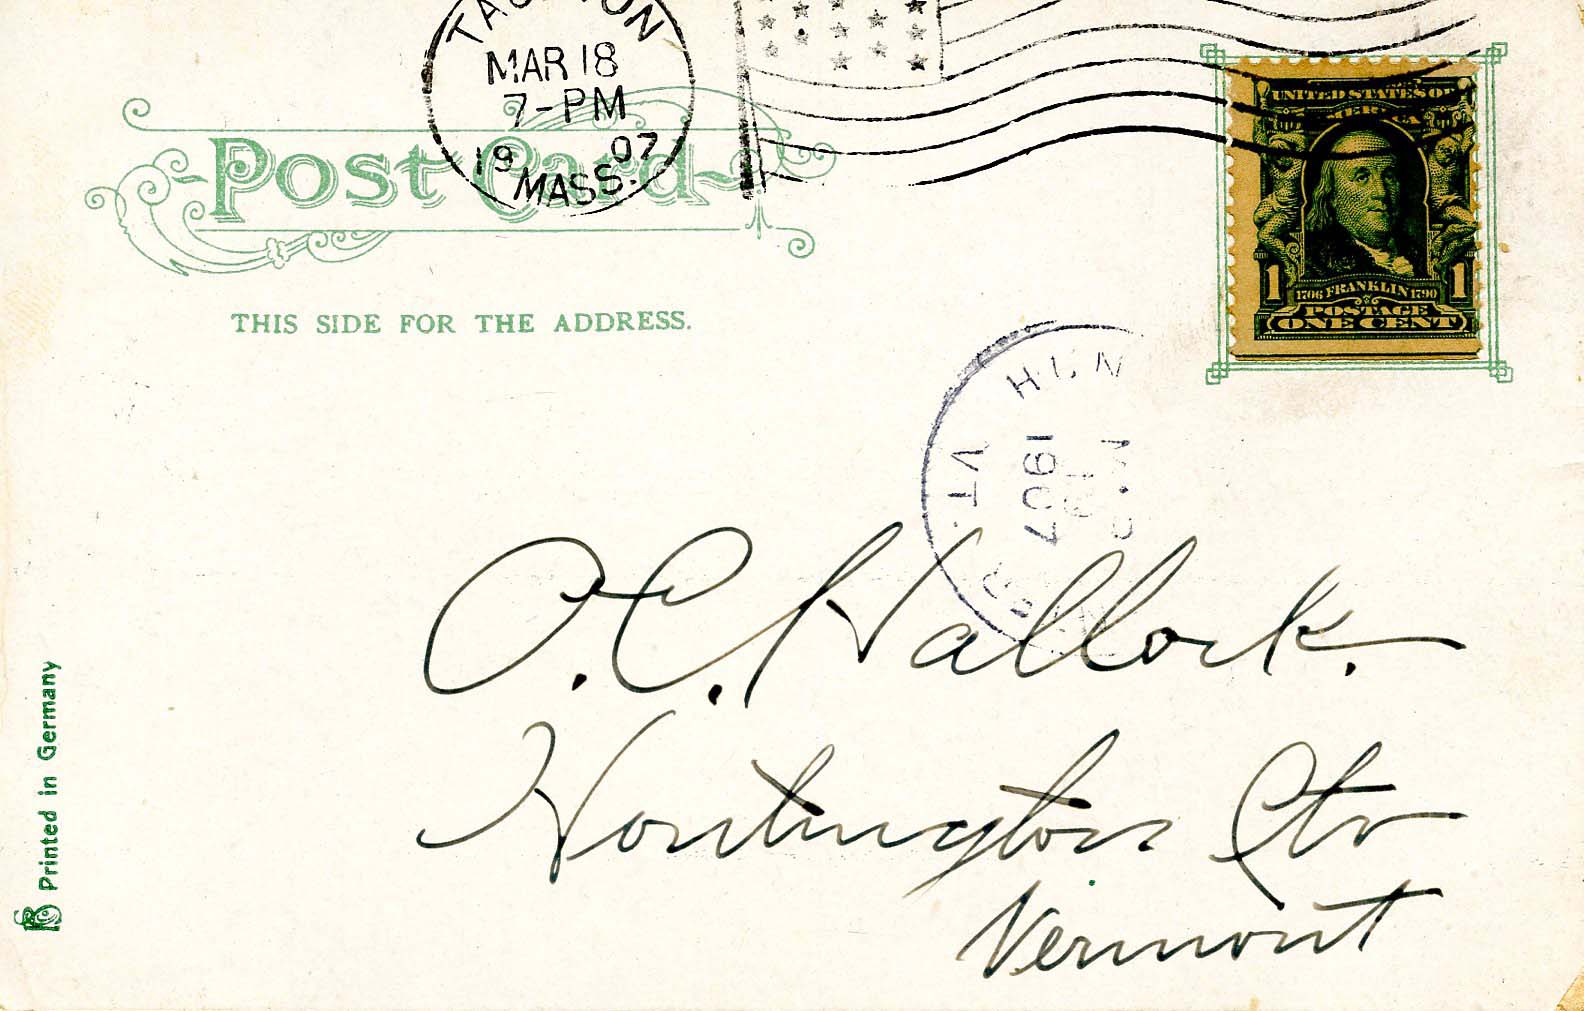 TAUNTON
MAR 18
7-PM
19 07
MASS.
Post Card
THIS SIDE FOR THE ADDRESS.
UNITED STATES OF
AMERICA
1 1
1706 FRANKLIN 1790
POSTAGE
ONE CENT
HUN
VT.
1907
O.C. Hallock.
Huntington Ctr
Vermont
Printed in Germany